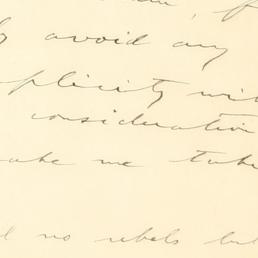 avoid any
plicity wi
consideration
ake me take
no rebels but